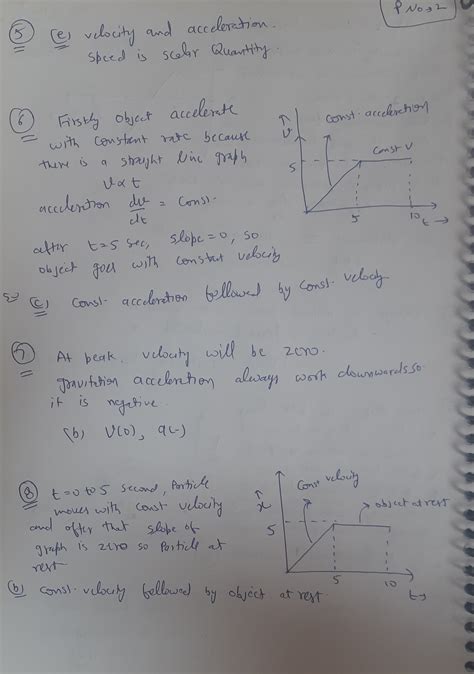 P No→2
(5) (e) velocity and acceleration.
Speed is scalar Quantity.
(6) Firstly object accelerate
with constant rate because
there is a straight line graph
v∝t
acceleration dv/dt = Const.
after t=5 sec, slope=0, so
object goes with constant velocity
so (c) Const. acceleration followed by const. velocity
v
const. acceleration
const v
5
5
10
t→
(7) At peak, velocity will be zero.
gravitation acceleration always work downwards so
it is negative.
(b) V(0), a(-)
(8) t=0 to 5 second, Particle
moves with const velocity
and after that slope of
graph is zero so Particle at
rest
(b) const. velocity followed by object at rest
x
const velocity
object at rest
5
5
10
t→